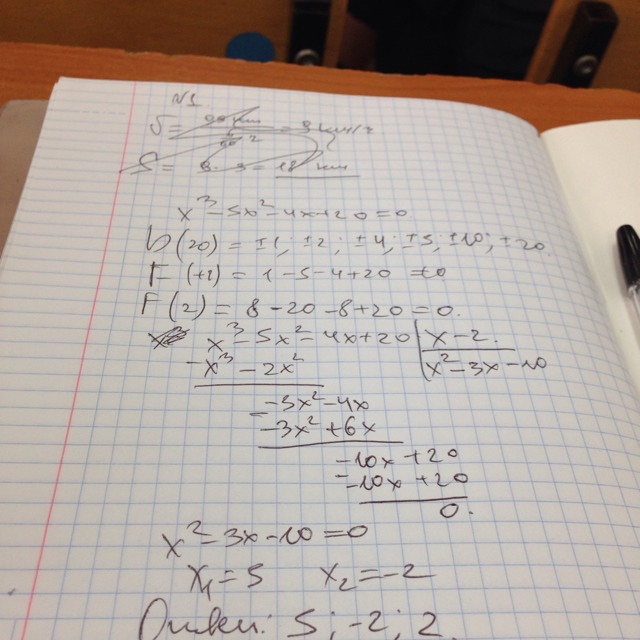 N1
x³-5x²-4x+20=0
D(20) = ±1; ±2; ±4; ±5; ±10; ±20.
F(+1) = 1-5-4+20 ≠0
F(2) = 8-20-8+20=0.
x³-5x²-4x+20 | x-2.
-x³-2x² | x²-3x-10
-3x²-4x
-3x²+6x
-10x+20
-10x+20
0.
x²-3x-10=0
x₁=5 x₂=-2
Ответ: 5; -2; 2